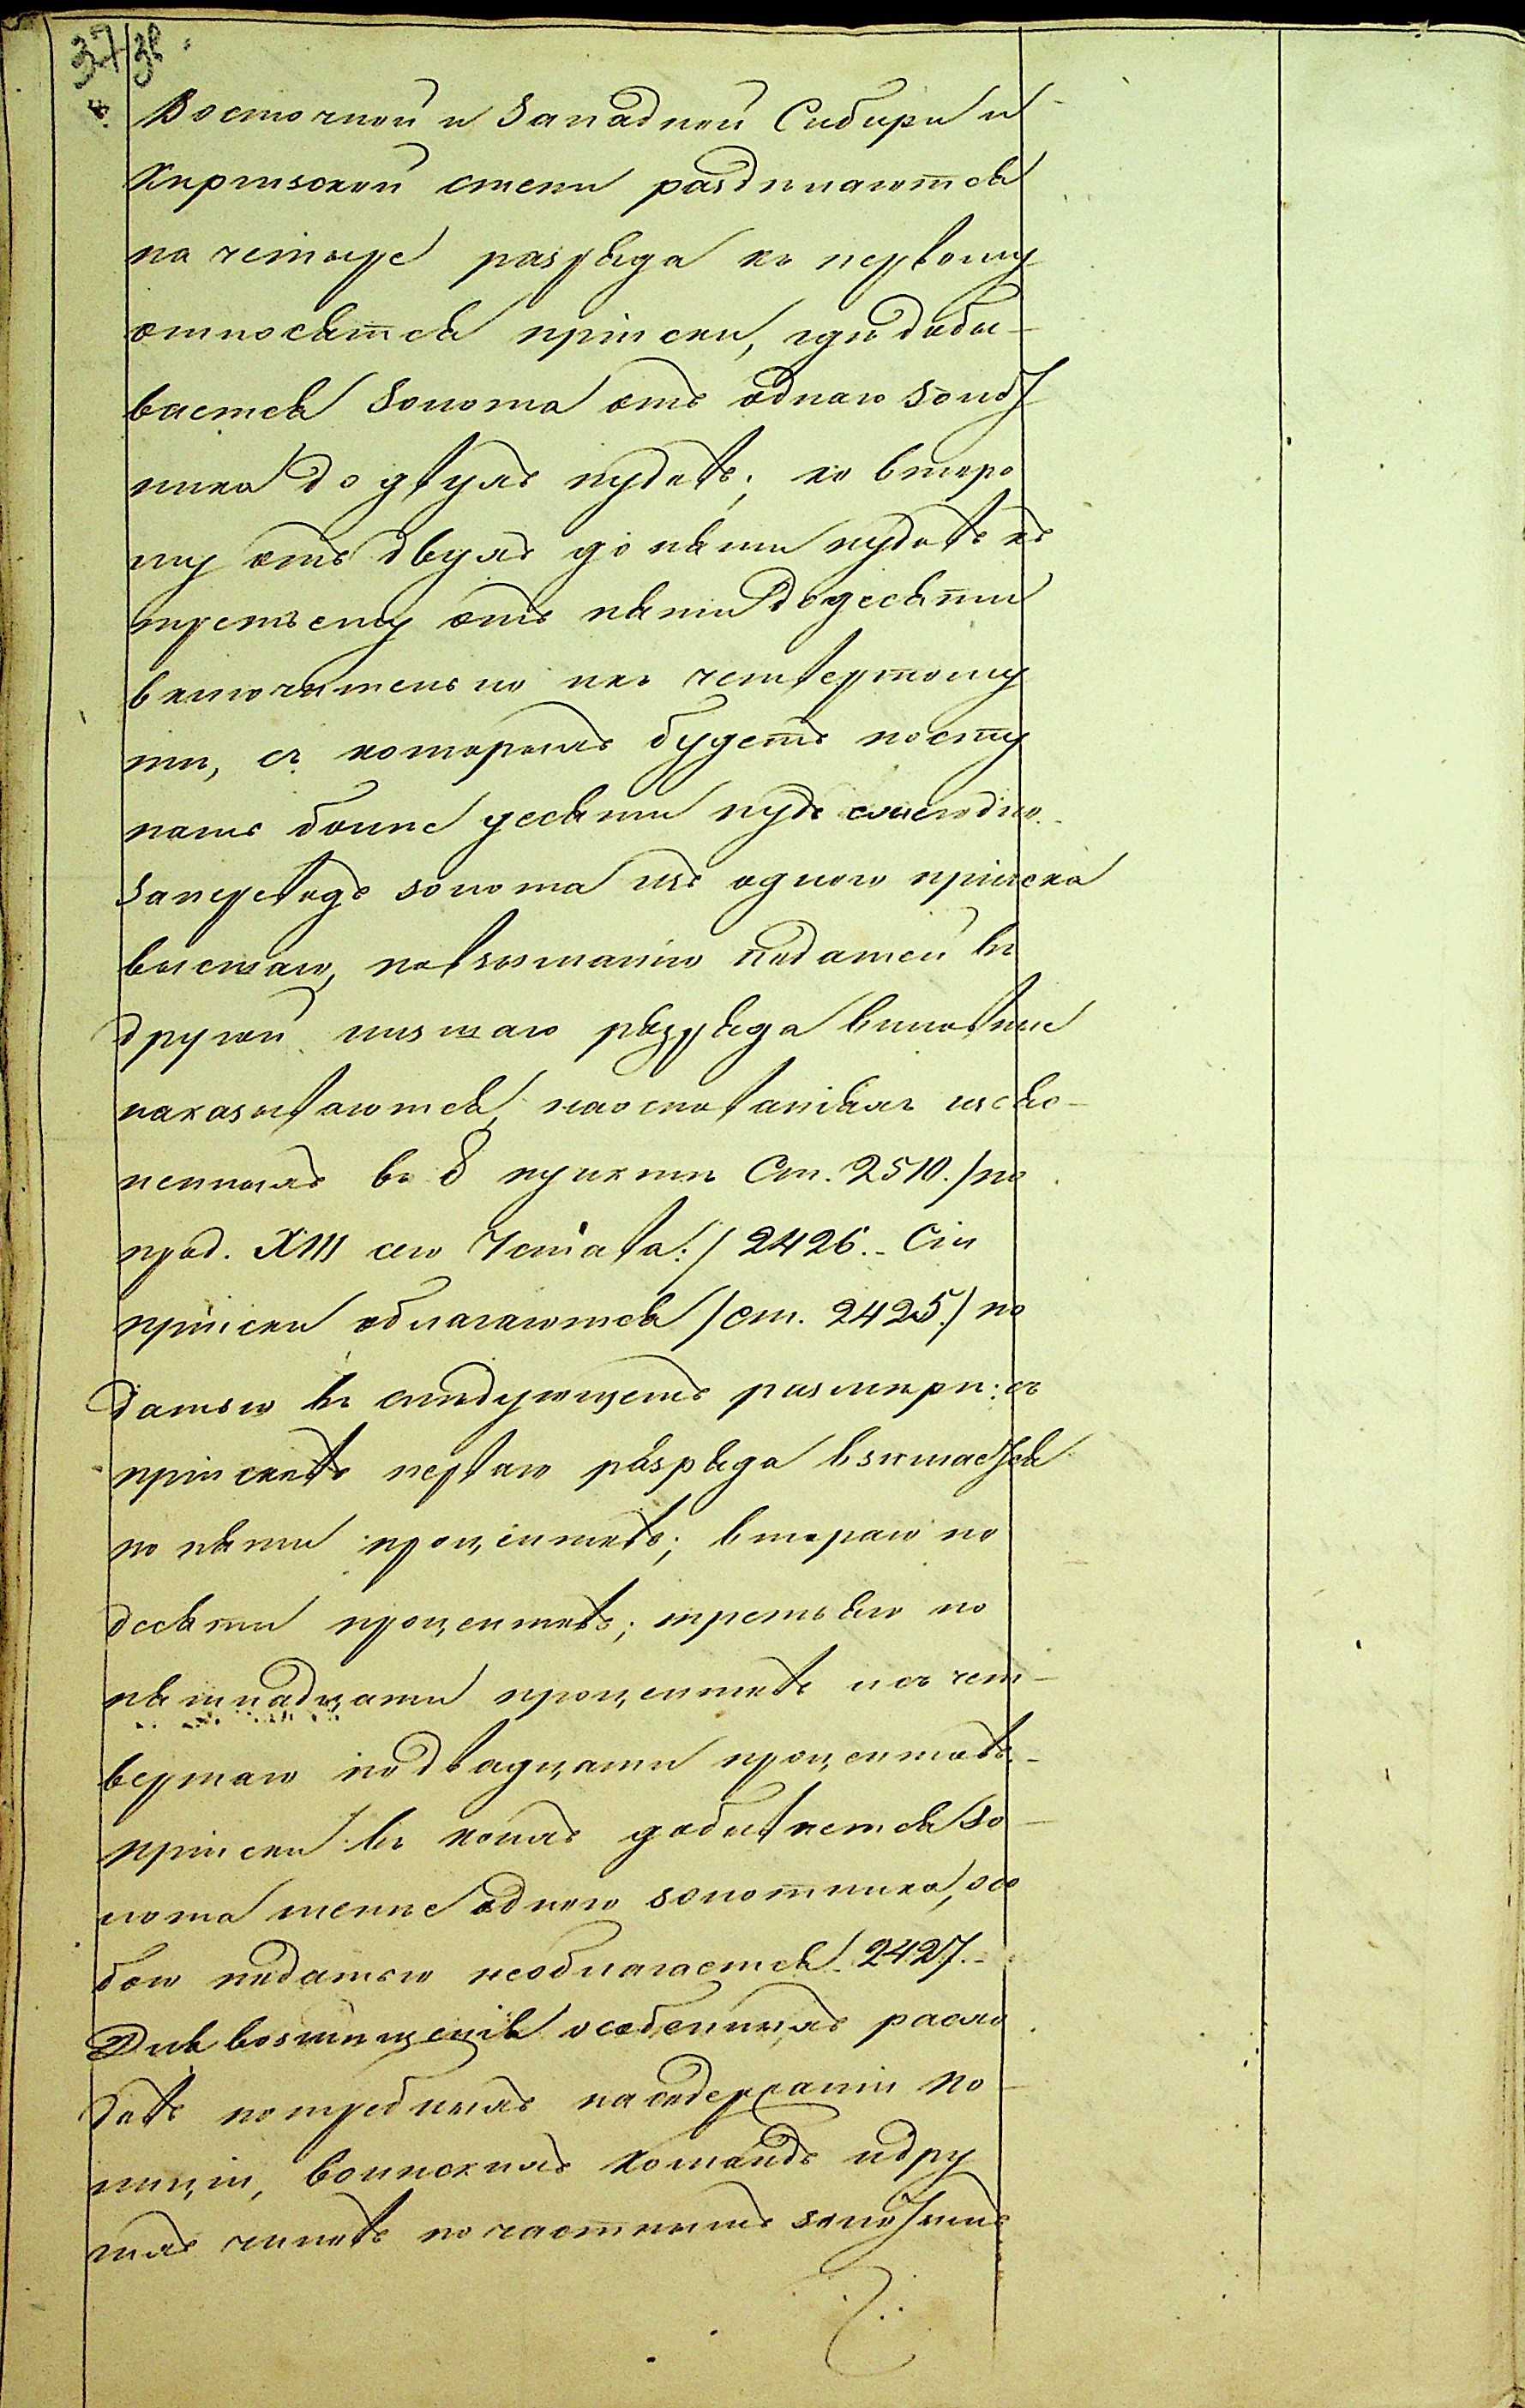 37 38
Восточной и Западной Сибири и
Киргизской степи раздѣляются
на четыре разряда къ первому
относятся пріиски, гдѣ добы-
вается золота отъ одного золот
ника до двухъ пудовъ; ко второ
му отъ двухъ до пяти пудовъ къ
третьему отъ пяти до десяти
включительно и къ четвертому
тѣ, съ которыхъ будетъ посту
пать болѣе десяти пудъ ежегодно.
За переводъ золота изъ одного пріиска
высшаго, по взиманію податей въ
другой низшаго разряда виновные
наказываются, на основаніяхъ изъяс-
ненныхъ въ 8 пунктѣ Ст. 2510. /по
прод. XIII сего Устава:/ 2426. - Сіи
пріиски облагаются /ст. 2425./ по
датью въ слѣдующемъ размѣрѣ: съ
пріисковъ перваго разряда взимается
по пяти процентовъ; втораго по
десяти процентовъ; третьяго по
пятнадцати процентовъ и съ чет-
вертаго по двадцати процентовъ. -
Пріиски въ коихъ добывается зо-
лота менѣе одного золотника, осо
бою податью необлагается. 2427. -
Для возмѣщенія особенныхъ расхо
довъ потребныхъ на содержаніи по-
лиціи, воинскихъ командъ и дру
гихъ чиновъ по частнымъ золотымъ